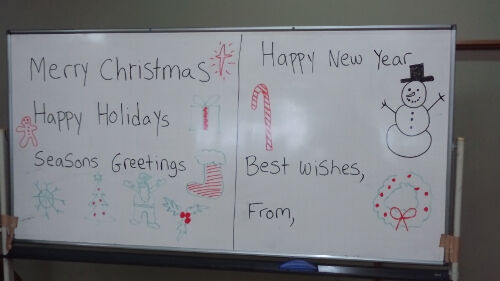 Merry Christmas
Happy Holidays
Seasons Greetings
Happy New Year
Best wishes,
From,